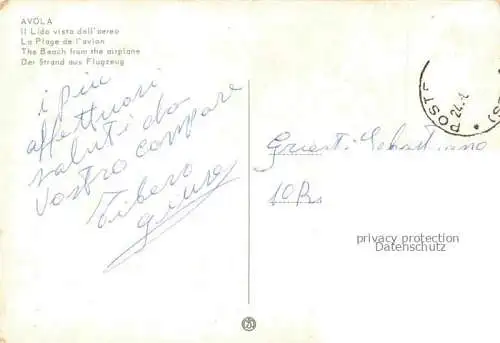 AVOLA
Il Lido visto dall'aereo
La Plage de l'avion
The Beach from the airplane
Der Strand aus Flugzeug
i più
affettuosi
saluti da
vostro compare
Tibero
POST
Sebastiano
privacy protection by
Datenschutz